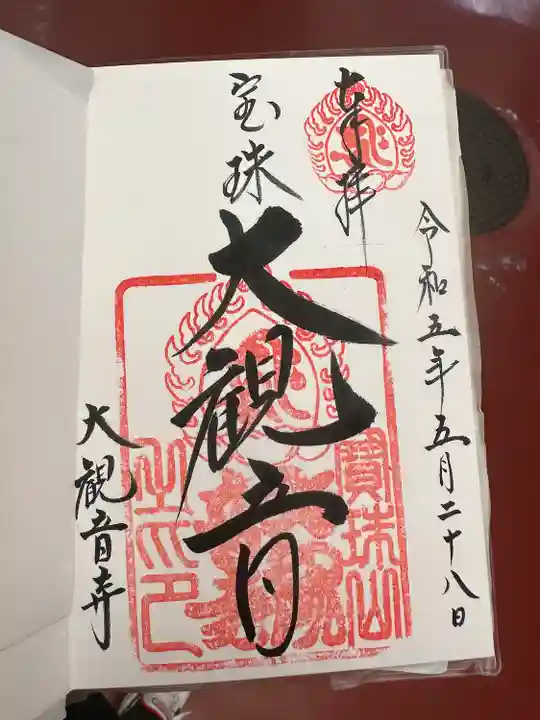 奉拝
令和五年五月二十八日
宝珠
大観音
大観音寺
寳珠山
之印